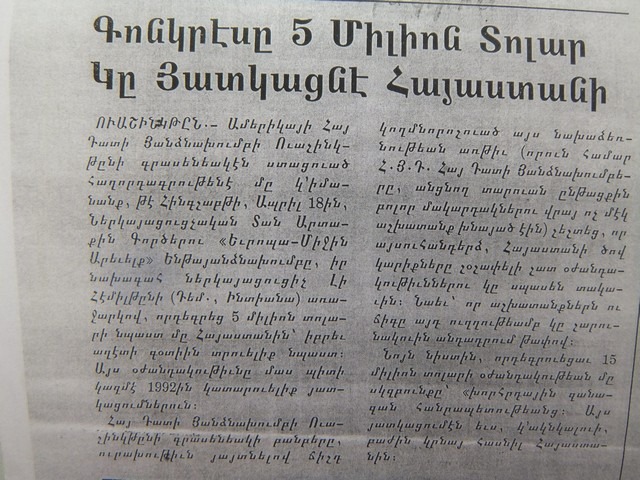 Գոնկրէսը 5 Միլիոն Տոլար
Կը Յատկացնէ Հայաստանի
ՈՒԱՇԻՆԿԹԸՆ.— Ամերիկայի Հայ
Դատի Յանձնախումբի Ուաշինկ-
թընի գրասենեակէն ստացուած
հաղորդագրութենէ մը կ՚իմա-
նանք, թէ Հինգշաբթի, Ապրիլ 18ին,
Ներկայացուցչական Տան Արտա-
քին Գործերու «Եւրոպա-Միջին
Արեւելք» Ենթայանձնախումբը, իր
նախագահ ներկայացուցիչ Լի
Հէմիլթընի (Դեմ., Ինտիանա) առա-
ջարկով, որդեգրեց 5 միլիոն տոլա-
րի նպաստ մը Հայաստանին՝ իբրեւ
աղէտի գօտիին տրուելիք նպաստ:
Այս օժանդակութիւնը մաս պիտի
կազմէ 1992ին կատարուելիք յատ-
կացումներուն:
Հայ Դատի Յանձնախումբի Ուա-
շինկթընի գրասենեակի բանբերը,
ուրախութիւն յայտնելով ճիշդ
կողմնորոշուած այս նախաձեռ-
նութեան առթիւ (որուն համար
Հ.Յ.Դ. Հայ Դատի Յանձնախումբե-
րը, անցնող տարուան ընթացքին
բոլոր մակարդակներու վրայ ոչ մէկ
աշխատանք խնայած էին) շեշտեց, որ
այսուհանդերձ, Հայաստանի ծով
կարիքները շօշափելի շատ օժանդա-
կութիւններու կը սպասեն տակա-
ւին: Նաեւ՝ որ աշխատանքներն ու
ճիգը այդ ուղղութեամբ կը շարու-
նակուին անդադրում թափով:
Նոյն նիստին, որդեգրուեցաւ 15
միլիոն տոլարի օժանդակութեան մը
սկզբունքը՝ «խորհրդային զանա-
զան հանրապետութեանց: Այս
յատկացումէն եւս, կ՚ակնկալուի,
բաժին կրնայ հասնիլ Հայաստա-
նին: